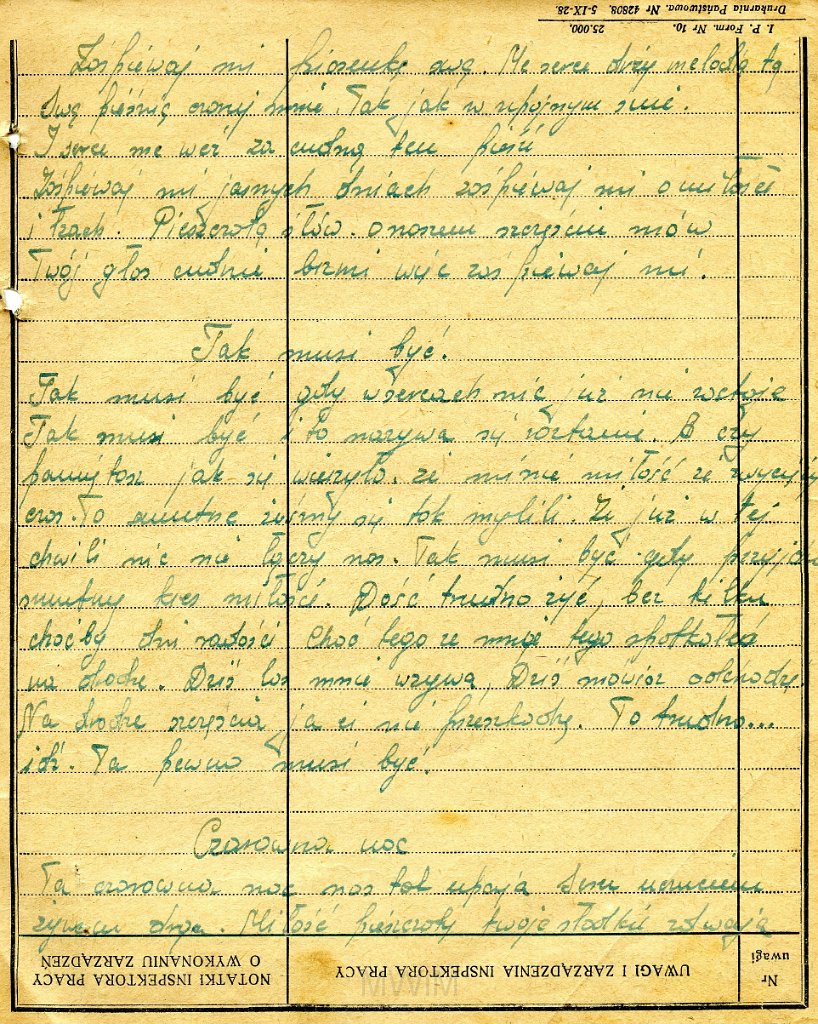 I. P. Form. Nr 10. 25.000.
Drukarnia Państwowa. Nr 42808. 5-IX-28.
Zaśpiewaj mi piosenkę swą. Me serce drży melodią tą
Swą pieśnią czaruj mnie. Tak jak w upojnym śnie.
I serce me weź za cudną tę pieśń
Zaśpiewaj mi jasnych dniach zaśpiewaj mi o miłości
i łzach. Pieszczotą słów. o naszem szczęściu mów
Twój głos cudnie brzmi więc zaśpiewaj mi.
Tak musi być.
Tak musi być gdy w sercach nic już nie zostaje
Tak musi być i to nazywa się rozstanie. A czy
pamiętasz jak się wierzyło. że miłość
czas. To smutne żeśmy się tak mylili. Że już w tej
chwili nic nie łączy nas. Tak musi być gdy przyjdzie
smutny kres miłości. Dość trudno żyć, bez kilku
choćby dni radości Choć tego
na drodze. Dziś los mnie wzywa, Dziś mówisz odchodzę.
Na drodze szczęścia ja ci nie przeszkodzę. To trudno...
idź. Ta pewno musi być.
Czarowna noc
Ta czarowna noc nas tak upaja
drga. Miłość pieszczoty twoje słodkie
NOTATKI INSPEKTORA PRACY O WYKONANIU ZARZĄDZEŃ
UWAGI I ZARZĄDZENIA INSPEKTORA PRACY
Nr uwagi
MWIM